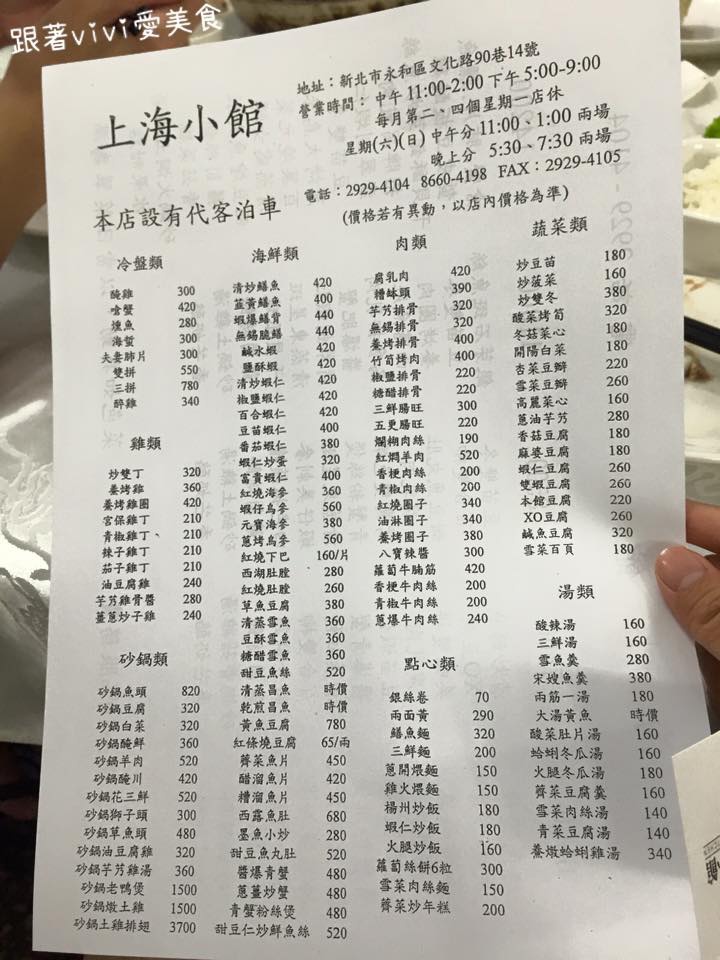 跟著vivi愛美食
上海小館
本店設有代客泊車
地址：新北市永和區文化路90巷14號
營業時間： 中午 11:00-2:00 下午 5:00-9:00
每月第二、四個星期一店休
星期(六)(日) 中午分 11:00、1:00 兩場
晚上分 5:30、7:30 兩場
電話：2929-4104 8660-4198 FAX：2929-4105
(價格若有異動，以店內價格為準)
冷盤類
醃雞 300
嗆蟹 420
燻魚 280
海蜇 300
夫妻肺片 300
雙拼 550
三拼 780
醉雞 340
雞類
炒雙丁 320
薺烤雞 360
薺烤雞圈 420
宮保雞丁 210
青椒雞丁 210
辣子雞丁 210
茄子雞丁 210
油豆腐雞 240
芋艿雞骨醬 280
薑蔥炒子雞 240
砂鍋類
砂鍋魚頭 820
砂鍋豆腐 320
砂鍋白菜 320
砂鍋醃鮮 360
砂鍋羊肉 520
砂鍋醃川 420
砂鍋花三鮮 520
砂鍋獅子頭 300
砂鍋草魚頭 480
砂鍋油豆腐雞 320
砂鍋芋艿雞湯 360
砂鍋老鴨煲 1500
砂鍋燉土雞 1500
砂鍋土雞排翅 3700
海鮮類
清炒鱔魚 420
韮黃鱔魚 400
蝦爆鱔背 440
無錫脆鱔 440
鹹水蝦 420
鹽酥蝦 420
清炒蝦仁 420
椒鹽蝦仁 420
百合蝦仁 420
豆苗蝦仁 400
番茄蝦仁 380
蝦仁炒蛋 320
富貴蝦仁 400
紅燒海參 360
蝦仔烏參 560
元寶海參 380
蔥烤烏參 560
紅燒下巴 160/片
西湖肚膛 280
紅燒肚膛 260
草魚豆腐 380
清蒸雪魚 360
豆酥雪魚 360
糖醋雪魚 360
甜豆魚絲 520
清蒸昌魚 時價
乾煎昌魚 時價
黃魚豆腐 780
紅條燒豆腐 65/兩
薺菜魚片 450
醋溜魚片 420
糟溜魚片 450
西露魚肚 680
墨魚小炒 280
甜豆魚丸肚 520
醬爆青蟹 480
蔥薑炒蟹 480
青蟹粉絲煲 480
甜豆仁炒鮮魚絲 520
肉類
腐乳肉 420
糟缽頭 390
芋艿排骨 320
無錫排骨 320
薺烤排骨 400
竹筍烤肉 400
椒鹽排骨 220
糖醋排骨 220
三鮮腸旺 300
五更腸旺 220
爛糊肉絲 190
紅燜羊肉 520
香梗肉絲 200
青椒肉絲 200
紅燒圈子 340
油淋圈子 340
薺烤圈子 380
八寶辣醬 300
蘿蔔牛腩筋 420
香梗牛肉絲 200
青椒牛肉絲 200
蔥爆牛肉絲 240
點心類
銀絲卷 70
兩面黃 290
鱔魚麵 320
三鮮麵 200
蔥開煨麵 150
雞火煨麵 150
楊州炒飯 180
蝦仁炒飯 180
火腿炒飯 160
蘿蔔絲餅6粒 300
雪菜肉絲麵 150
薺菜炒年糕 200
蔬菜類
炒豆苗 180
炒菠菜 160
炒雙冬 380
酸菜烤筍 320
冬菇菜心 180
開陽白菜 180
杏菜豆瓣 220
雪菜豆瓣 260
高麗菜心 160
蔥油芋艿 280
香菇豆腐 180
麻婆豆腐 180
蝦仁豆腐 260
雙蝦豆腐 260
本館豆腐 220
XO豆腐 260
鹹魚豆腐 320
雪菜百頁 180
湯類
酸辣湯 160
三鮮湯 160
雪魚羹 280
宋嫂魚羹 380
兩筋一湯 180
大湯黃魚 時價
酸菜肚片湯 160
蛤蜊冬瓜湯 160
火腿冬瓜湯 180
薺菜豆腐羹 160
雪菜肉絲湯 140
青菜豆腐湯 140
薺燉蛤蜊雞湯 340